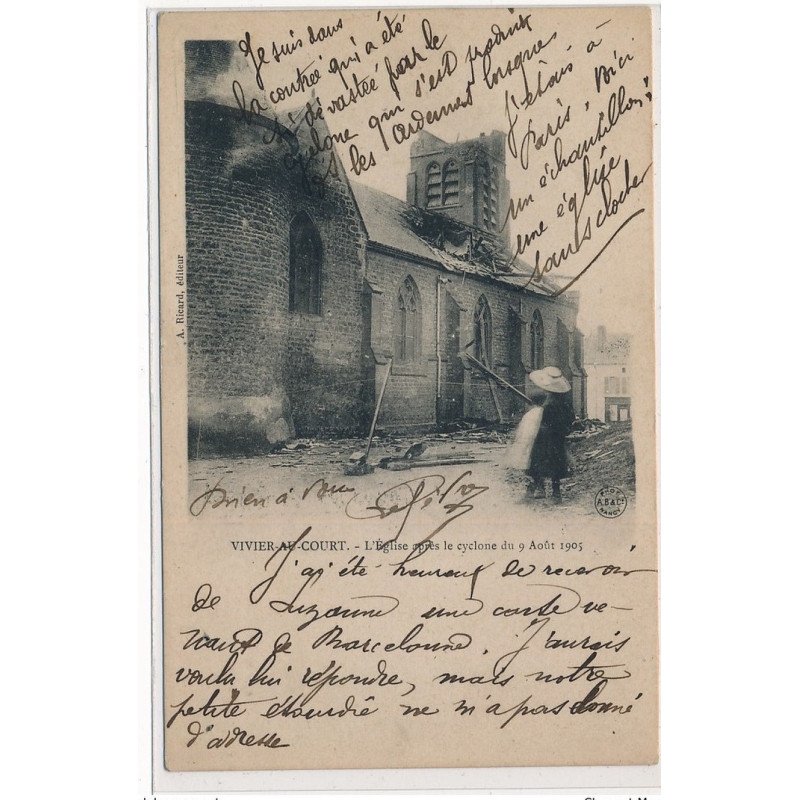 Je suis dans
la contrée qui a été
dévastée par le
cyclone qui s'est produit
les Ardennes lorsque
j'étais à
Paris. Voici
un échantillon :
une église
sans clocher
A. Ricard, éditeur
bien à vous
PHOT
A.B & Cie
NANCY
VIVIER-AU-COURT. - L'Église après le cyclone du 9 Août 1905
J'ai été heureux de recevoir
de Suzanne une carte ve-
nant de Barcelonne. J'aurais
voulu lui répondre, mais notre
petite étourdie ne m'a pas donné
d'adresse